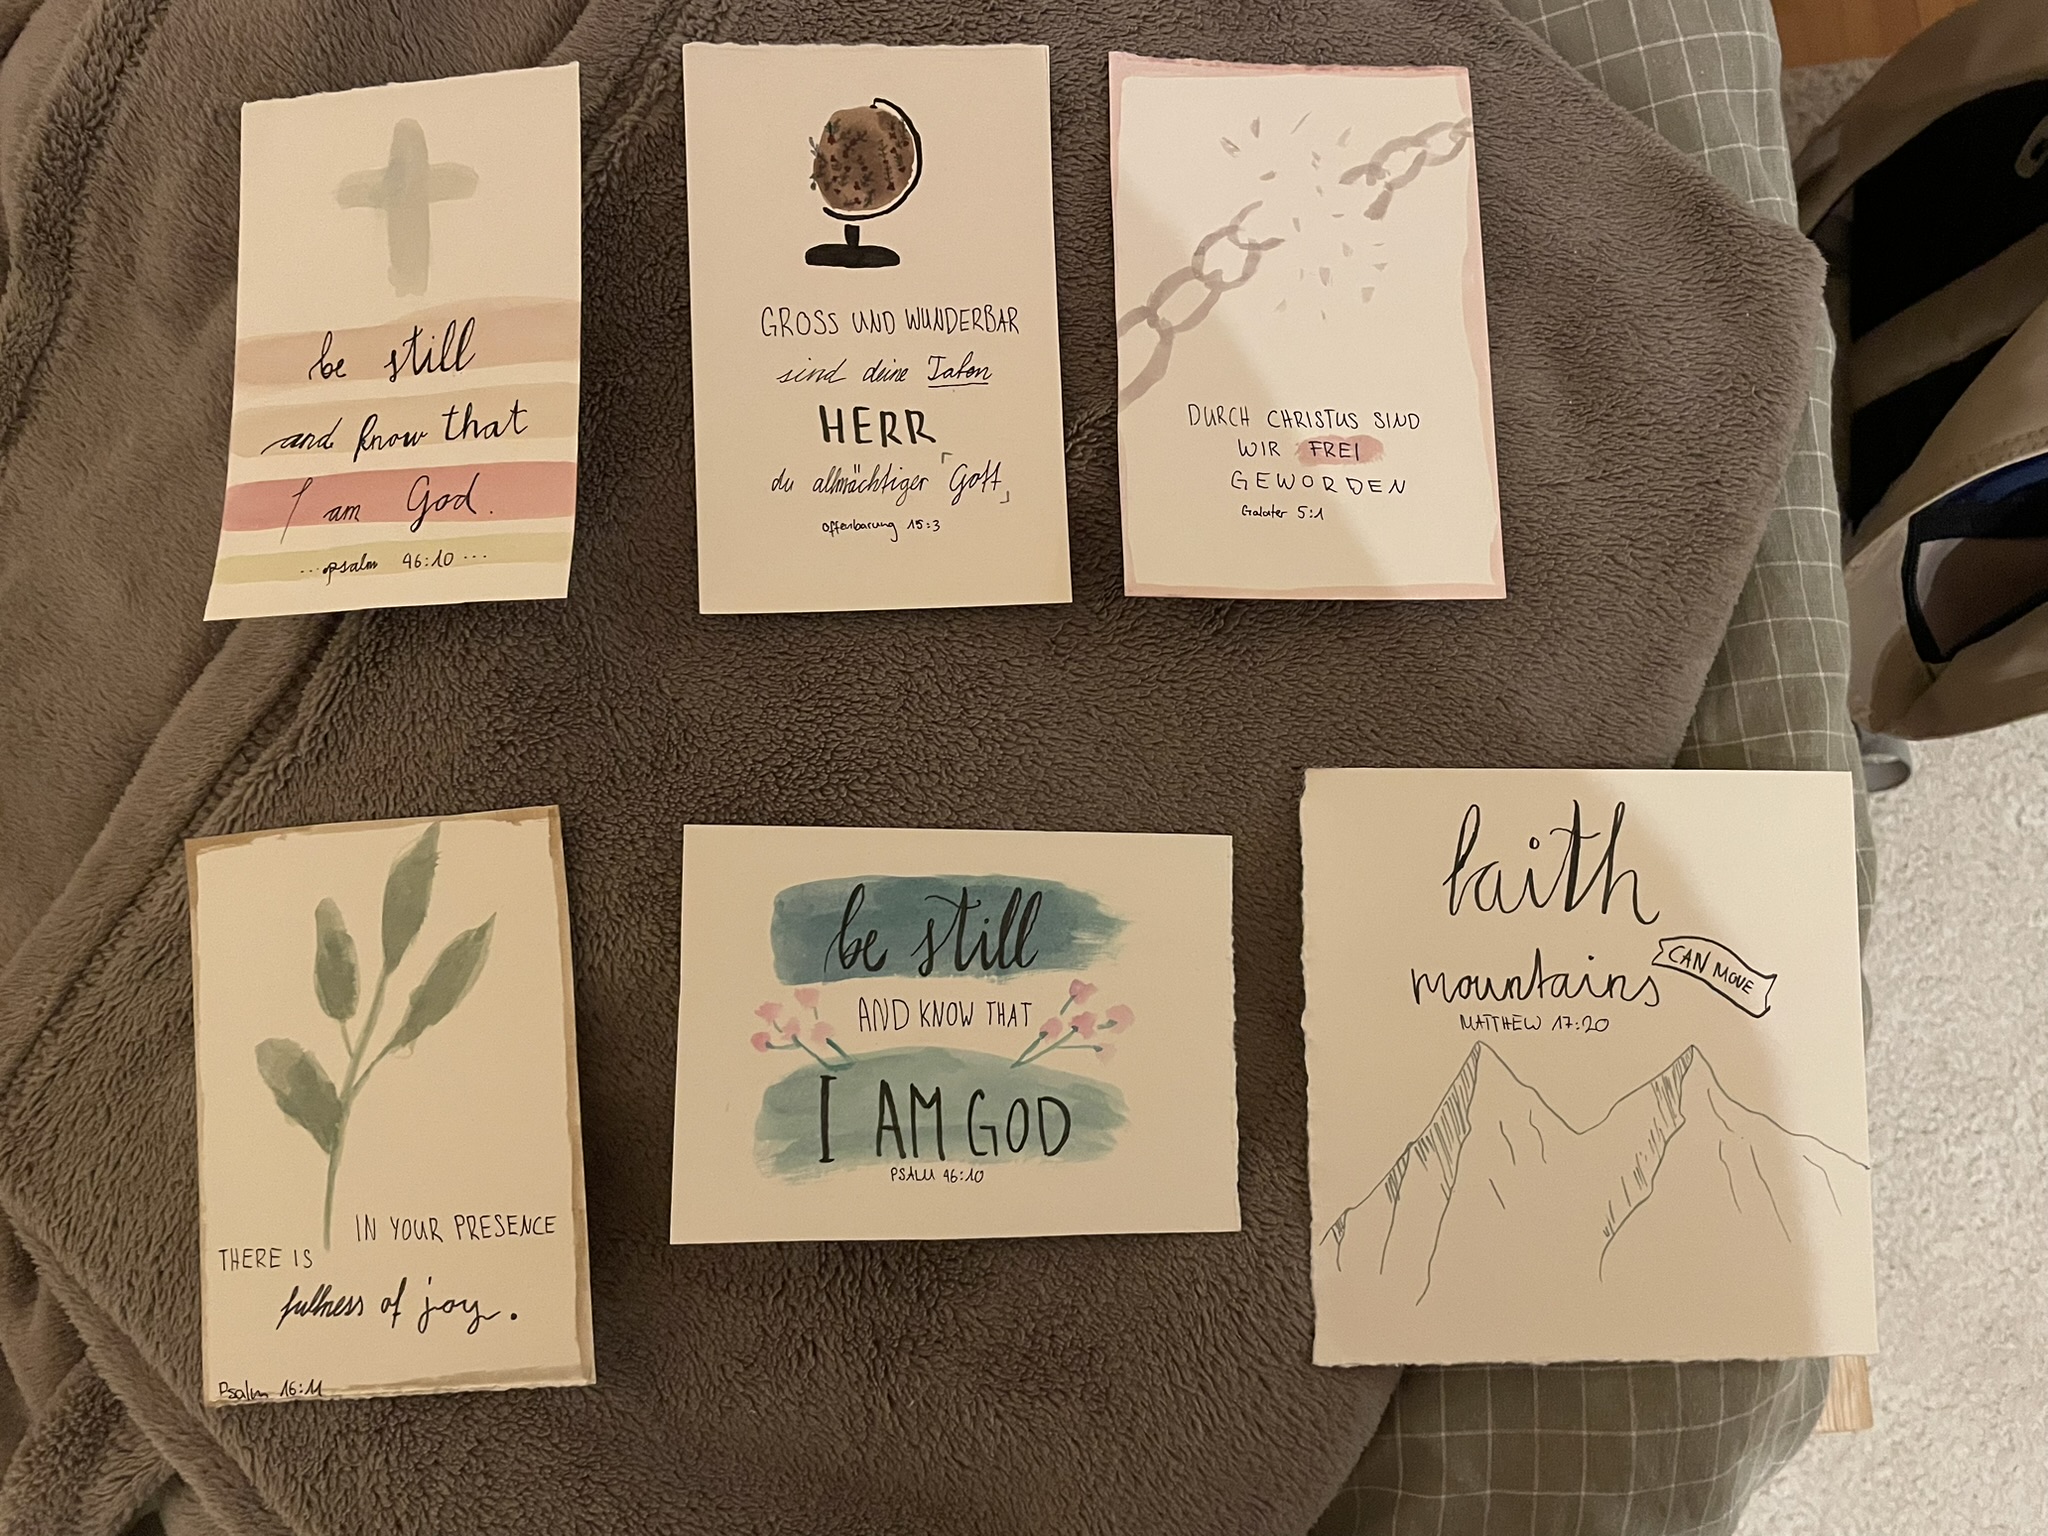 be still
and know that
I am God.
...psalm 46:10...
GROSS UND WUNDERBAR
sind deine Taten
HERR
du allmächtiger「Gott」
Offenbarung 15:3
DURCH CHRISTUS SIND
WIR FREI
GEWORDEN
Galater 5:1
IN YOUR PRESENCE
THERE IS
fullness of joy.
Psalm 16:11
be still
AND KNOW THAT
I AM GOD
PSALM 46:10
faith
CAN MOVE
mountains
MATTHEW 17:20